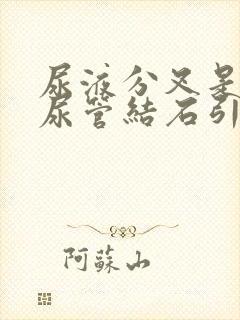 尿液分叉是
尿管結石引
阿蘇山